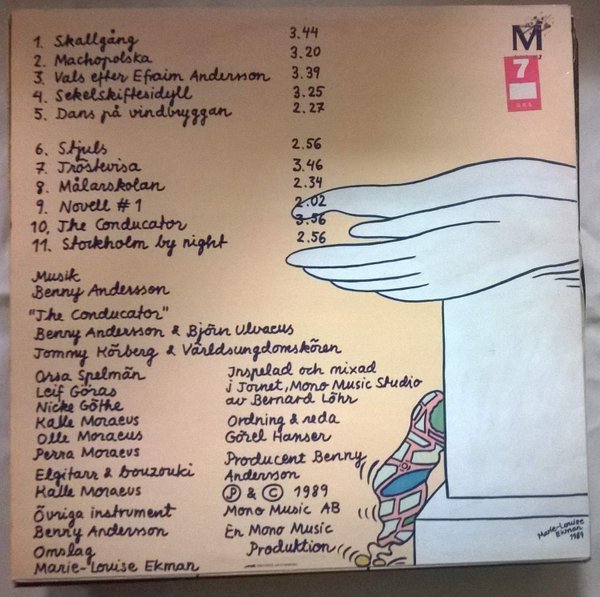 1. Skallgång 3.44
2. Machopolska 3.20
3. Vals efter Efraim Andersson 3.39
4. Sekelskiftesidyll 3.25
5. Dans på vindbryggan 2.27
6. Stjuls 2.56
7. Tröstevisa 3.46
8. Målarskolan 2.34
9. Novell #1 2.02
10, The Conducator 3.56
11. Stockholm by night 2.56
M
7
Musik
Benny Andersson
"The Conducator"
Benny Andersson & Björn Ulvaeus
Tommy Körberg & Världsungdomskören
Orsa Spelmän
Leif Göras
Nicke Göthe
Kalle Moraeus
Olle Moraeus
Perra Moraeus
Elgitarr & bouzouki
Kalle Moraeus
Övriga instrument
Benny Andersson
Omslag
Marie-Louise Ekman
Inspelad och mixad
i Tornet, Mono Music Studio
av Bernard Löhr
Ordning & reda
Görel Hanser
Producent Benny
Andersson
℗ & © 1989
Mono Music AB
En Mono Music
Produktion
Marie-Louise
Ekman
1989